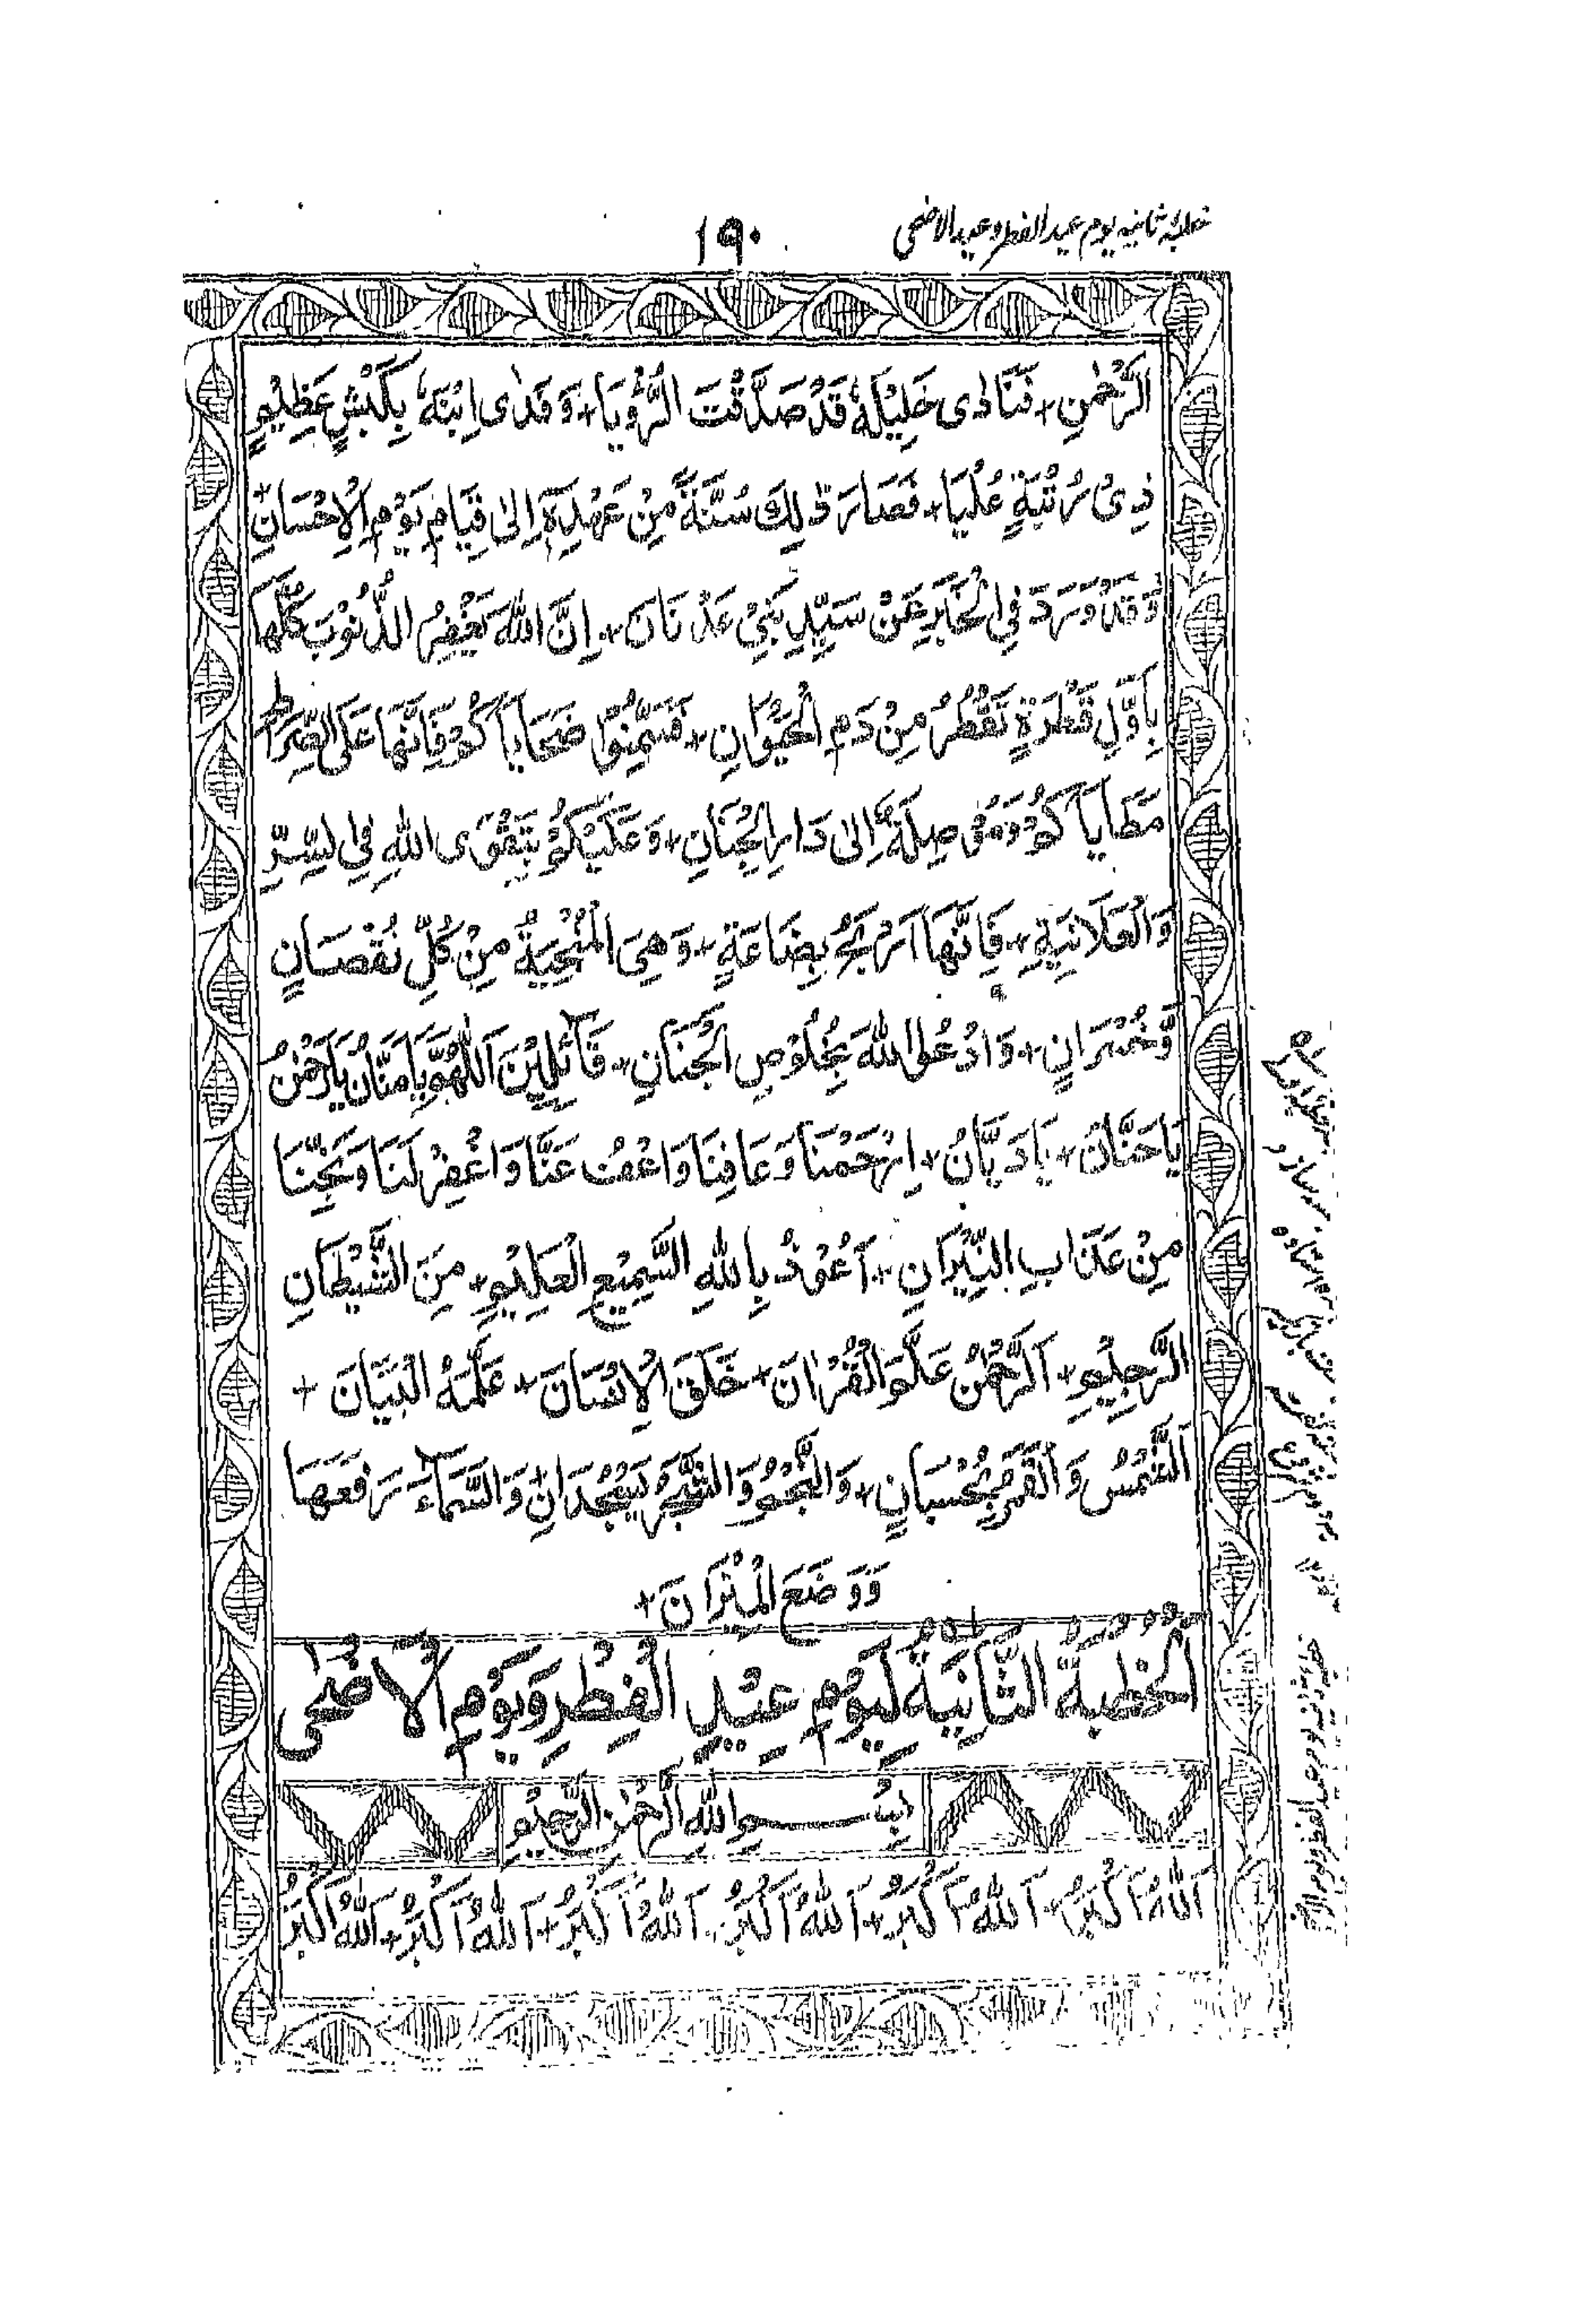 خطبۂ ثانیہ یوم عید الفطر و عید الاضحی
١٩٠
الرَّحْمٰنِ + فَنَادٰى خَلِيْلَهٗ قَدْ صَدَّقْتَ الرُّؤْيَا + وَفَدٰى ابْنَهٗ بِكَبْشٍ عَظِيْمٍ
ذِيْ رُتْبَةٍ عُلْيَا + فَصَارَ ذٰلِكَ سُنَّةً مِنْ عَهْدِهٖ اِلٰى قِيَامِ يَوْمِ الْاِحْسَانِ +
وَقَدْ وَرَدَ فِي الْخَبَرِ عَنْ سَيِّدِ بَنِيْ عَدْنَانَ + اِنَّ اللهَ يَغْفِرُ الذُّنُوْبَ كُلَّهَا
بِاَوَّلِ قَطْرَةٍ تَقْطُرُ مِنْ دَمِ الْحَيَوَانِ + فَسَمِّنُوْا ضَحَايَاكُمْ فَاِنَّهَا عَلَى الصِّرَاطِ
مَطَايَاكُمْ وَمُوْصِلَةٌ اِلٰى دَارِ الْجِنَانِ + وَعَلَيْكُمْ بِتَقْوَى اللهِ فِي السِّرِّ
وَالْعَلَانِيَةِ + فَاِنَّهَا اَرْبَحُ بِضَاعَةٍ + وَهِيَ الْمُنْجِيَةُ مِنْ كُلِّ نُقْصَانٍ
وَّخُسْرَانٍ + وَادْعُوا اللهَ بِخُلُوْصِ الْجَنَانِ + قَائِلِيْنَ اَللّٰهُمَّ يَا مَنَّانُ يَا رَحْمٰنُ
يَا حَنَّانُ + يَا دَيَّانُ + اِرْحَمْنَا وَعَافِنَا وَاعْفُ عَنَّا وَاغْفِرْ لَنَا وَنَجِّنَا
مِنْ عَذَابِ النِّيْرَانِ + اَعُوْذُ بِاللهِ السَّمِيْعِ الْعَلِيْمِ + مِنَ الشَّيْطَانِ
الرَّجِيْمِ + اَلرَّحْمٰنُ عَلَّمَ الْقُرْاٰنَ + خَلَقَ الْاِنْسَانَ + عَلَّمَهُ الْبَيَانَ +
اَلشَّمْسُ وَالْقَمَرُ بِحُسْبَانٍ + وَالنَّجْمُ وَالشَّجَرُ يَسْجُدَانِ + وَالسَّمَآءَ رَفَعَهَا
وَوَضَعَ الْمِيْزَانَ +
اَلْخُطْبَةُ الثَّانِيَةُ لِيَوْمِ عِيْدِ الْفِطْرِ وَيَوْمِ الْاَضْحٰى
بِسْمِ اللهِ الرَّحْمٰنِ الرَّحِيْمِ
اَللهُ اَكْبَرُ + اَللهُ اَكْبَرُ + اَللهُ اَكْبَرُ + اَللهُ اَكْبَرُ + اَللهُ اَكْبَرُ + اَللهُ اَكْبَرُ